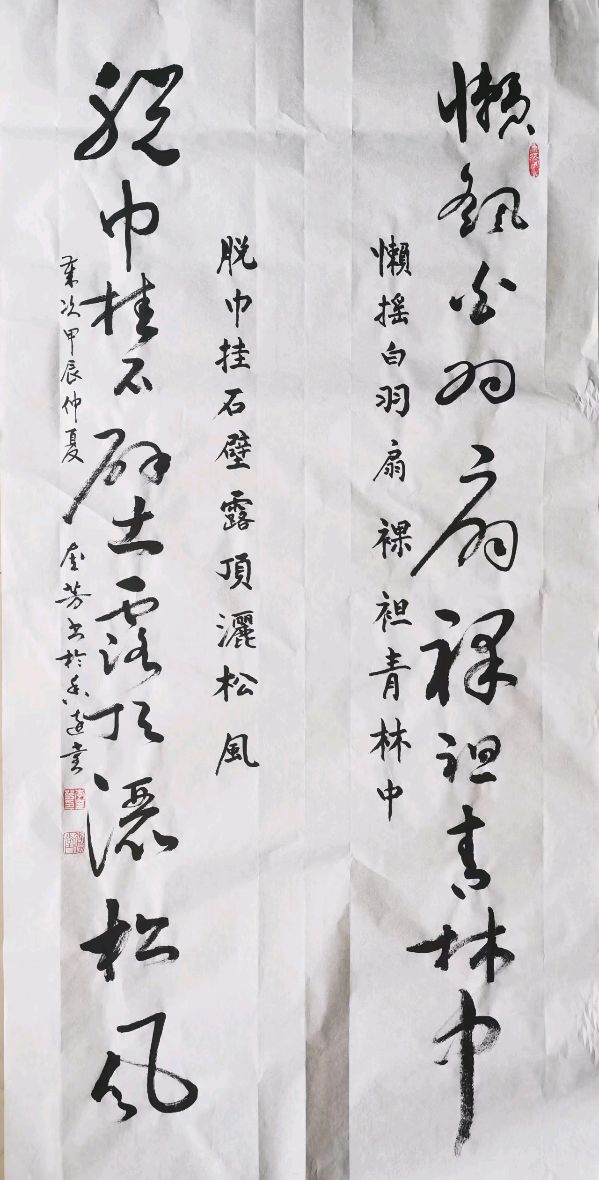 懶摇白羽扇裸袒青林中
懶摇白羽扇裸袒青林中
脱巾挂石壁露頂灑松風
脱巾挂石壁露頂灑松風
歲次甲辰仲夏 芳书於